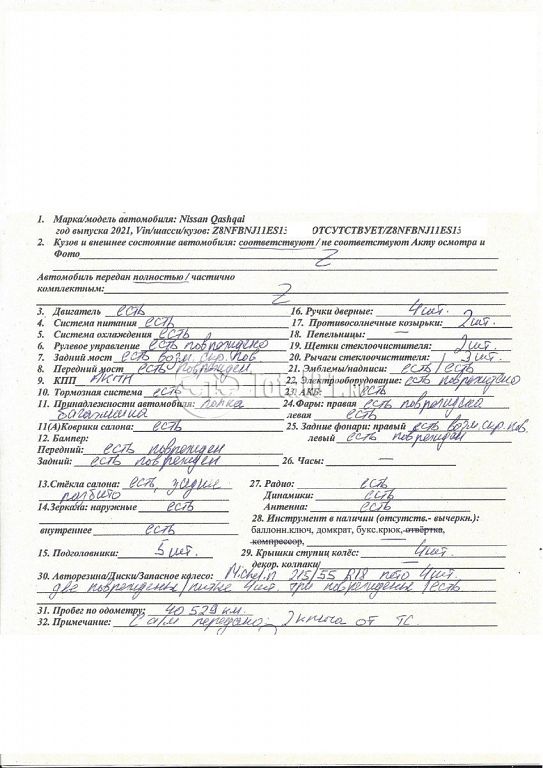 1. Марка/модель автомобиля: Nissan Qashqai
год выпуска 2021, Vin/шасси/кузов: Z8NFBNJ11ES15 ОТСУТСТВУЕТ/Z8NFBNJ11ES15
2. Кузов и внешнее состояние автомобиля: соответствуют / не соответствуют Акту осмотра и
Фото Z
Автомобиль передан полностью / частично
комплектным: Z
3. Двигатель есть
4. Система питания есть
5. Система охлаждения есть
6. Рулевое управление есть повреждено
7. Задний мост есть возм. скр. пов
8. Передний мост есть поврежден
9. КПП АКПП
10. Тормозная система есть
11. Принадлежности автомобиля: полка
багажника
11(А)Коврики салона: есть
12. Бампер:
Передний: есть поврежден
Задний: есть поврежден
13.Стёкла салона: есть, заднее
разбито
14.Зеркала: наружные есть
внутреннее есть
15. Подголовники: 5 шт.
16. Ручки дверные: 4 шт.
17. Противосолнечные козырьки: 2 шт.
18. Пепельницы: —
19. Щетки стеклоочистителя: 2 шт.
20. Рычаги стеклоочистителя: 3 шт.
21. Эмблемы/надписи: есть / есть
22. Электрооборудование: есть повреждено
23. АКБ: есть
24.Фары: правая есть повреждена
левая есть
25. Задние фонари: правый есть возм. скр. пов.
левый есть поврежден
26. Часы: —
27. Радио: есть
Динамики: есть
Антенна: есть
28. Инструмент в наличии (отсутств.- вычеркн.):
баллонн.ключ, домкрат, букс.крюк, отвёртка,
компрессор,
29. Крышки ступиц колёс: 4 шт.
декор. колпаки/ —
30. Авторезина/Диски/Запасное колесо: Michelin 215/55 R18 лето 4 шт.
две повреждены / литые 4 шт. три повреждены / есть
31. Пробег по одометру: 40 529 км.
32. Примечание: С а/м передано: 2 ключа от ТС.